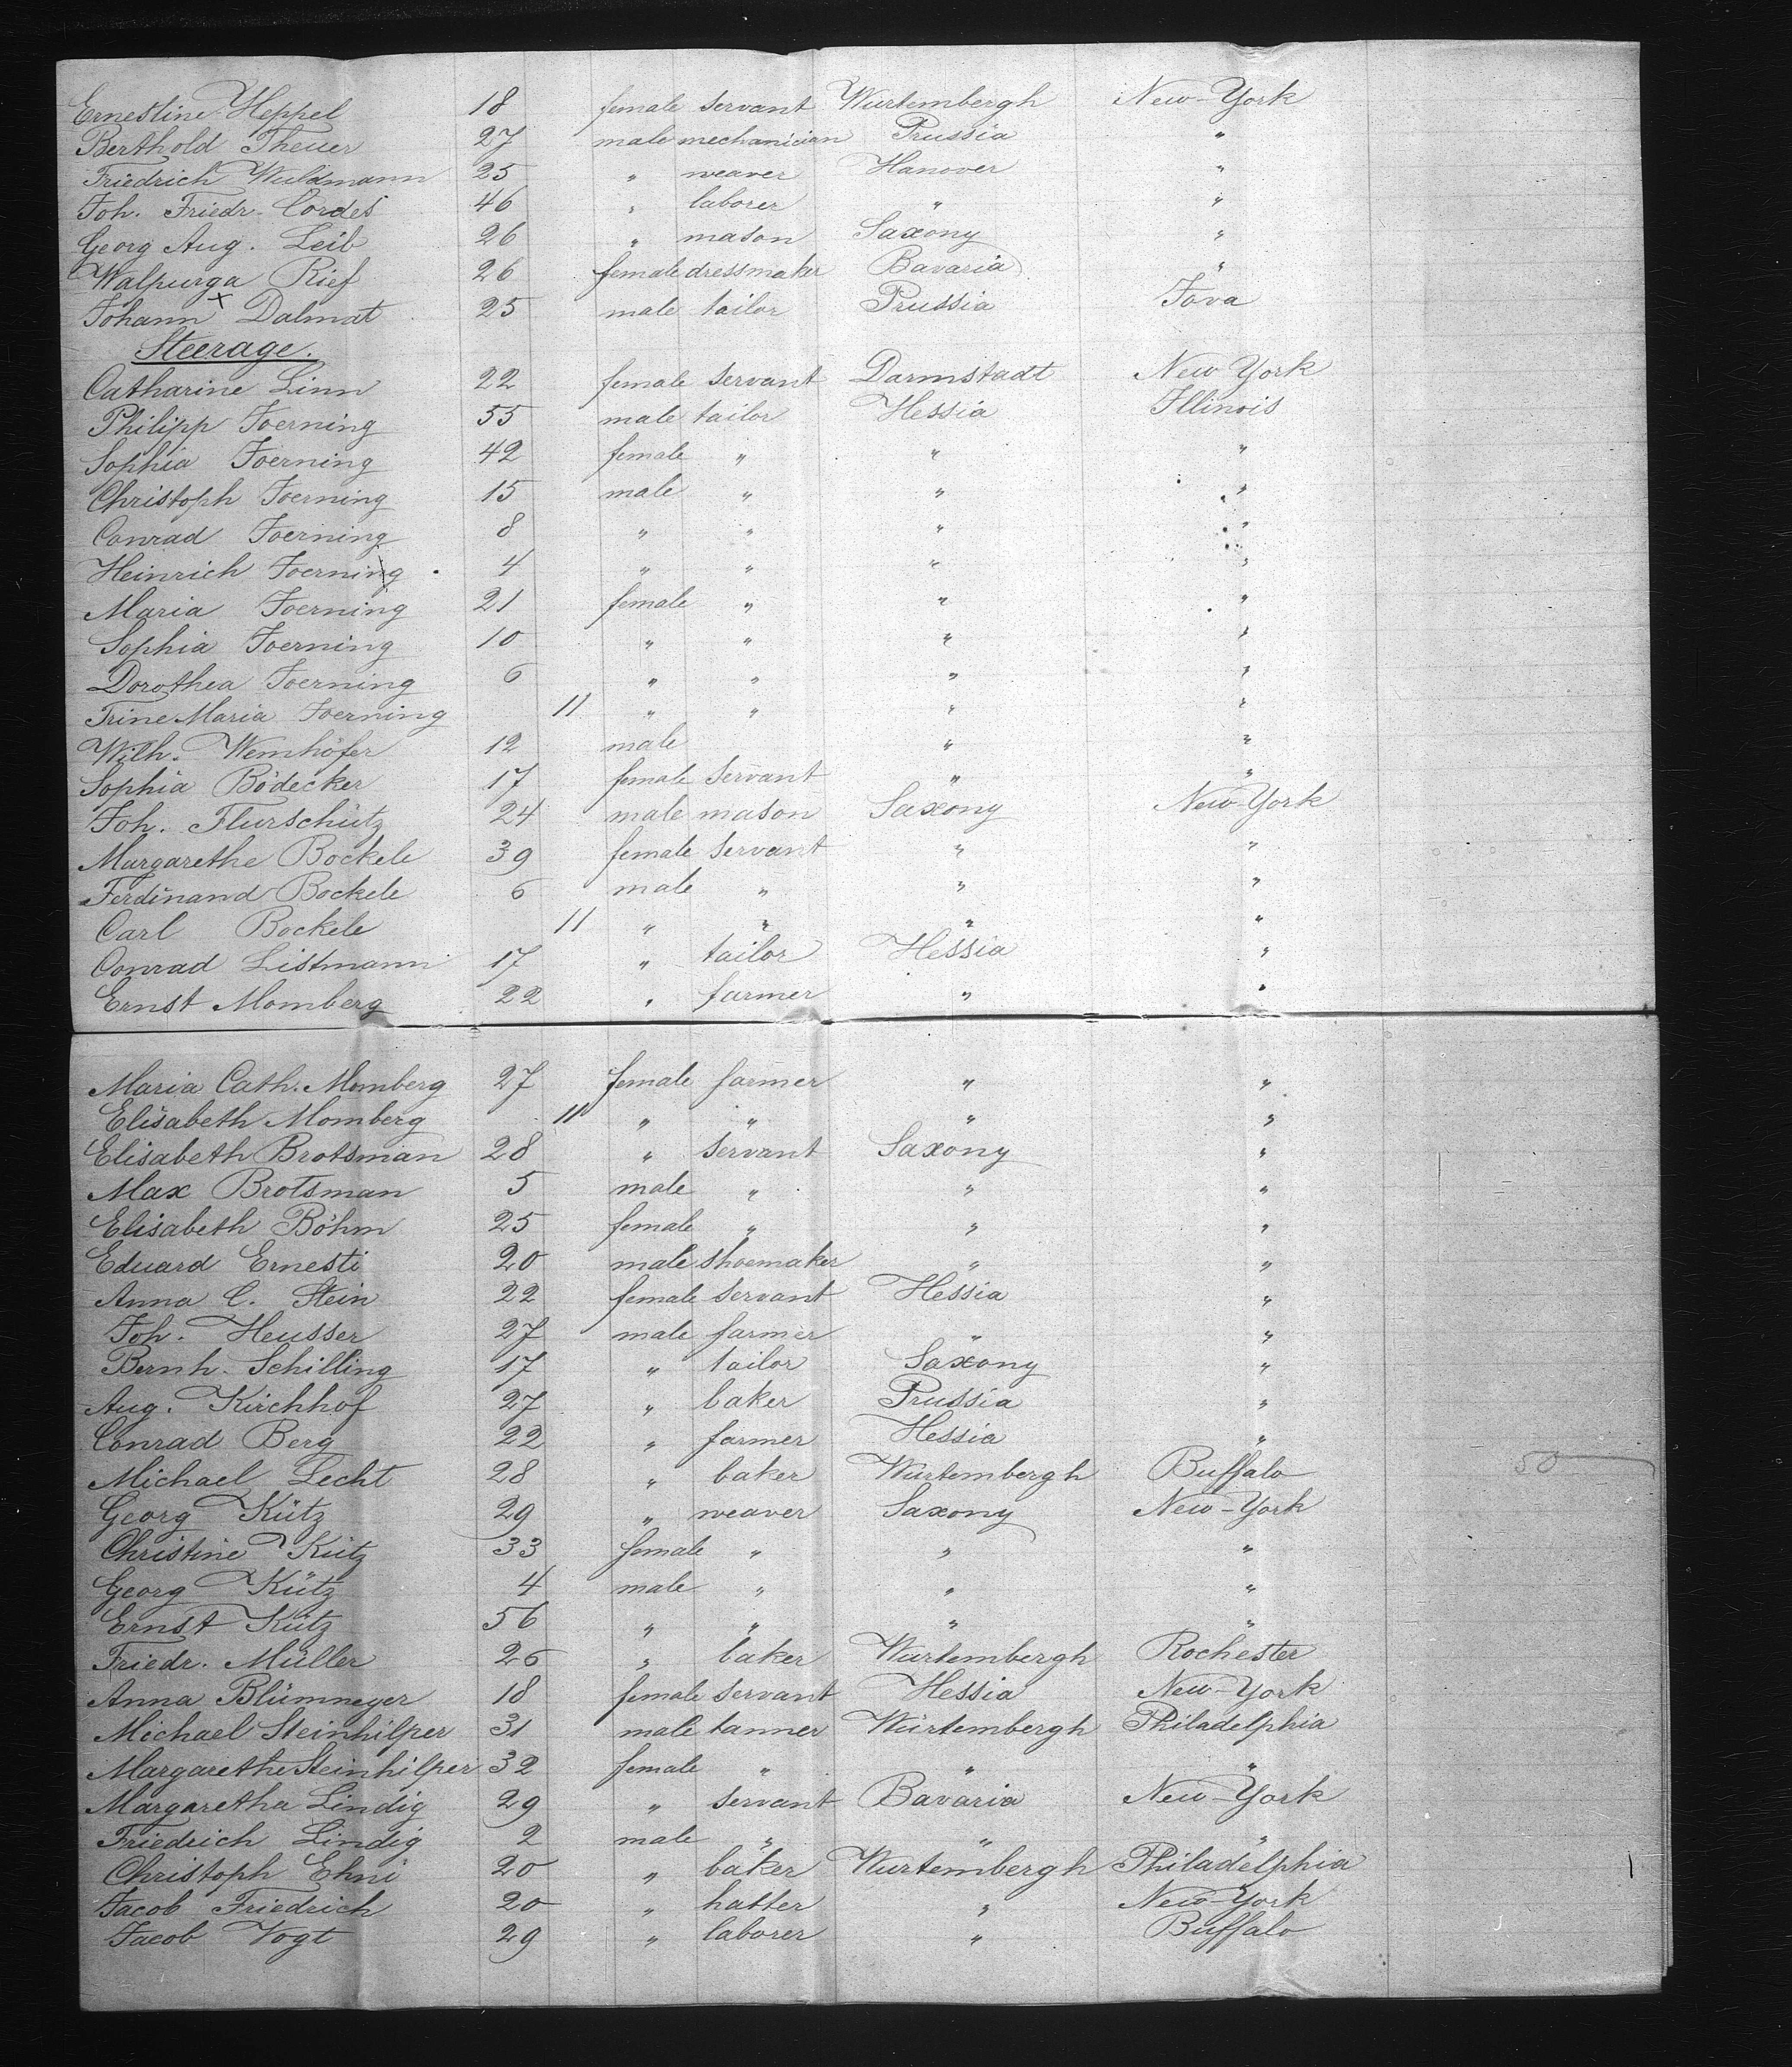 Ernestine Heppel 18 female servant Wurtembergh New-York
Berthold Theuer 27 male mechanician Prussia "
Friedrich Wuldmann 25 " weaver Hanover "
Joh. Friedr. Cordes 46 " laborer " "
Georg Aug. Leib 26 " mason Saxony "
Walpurga Rief 26 female dressmaker Bavaria "
Johann x Dalmat 25 male tailor Prussia Iova
Steerage.
Catharine Linn 22 female servant Darmstadt New York
Philipp Foerning 55 male tailor Hessia Illinois
Sophia Foerning 42 female " " "
Christoph Foerning 15 male " " "
Conrad Foerning 8 " " " "
Heinrich Foerning 4 " " " "
Maria Foerning 21 female " " "
Sophia Foerning 10 " " " "
Dorothea Foerning 6 " " " "
Trine Maria Foerning 11 " " " "
Wilh. Wemhöfer 12 male " "
Sophia Bödecker 17 female servant " "
Joh. Flurschütz 24 male mason Saxony New-York
Margarethe Bockele 39 female servant " "
Ferdinand Bockele 6 male " " "
Carl Bockele 11 " " " "
Conrad Listmann 17 " tailor Hessia "
Ernst Momberg 22 " farmer " "
Maria Cath. Momberg 27 female farmer " "
Elisabeth Momberg 11 " " " "
Elisabeth Brotsman 28 " servant Saxony "
Max Brotsman 5 male " " "
Elisabeth Böhm 25 female " " "
Eduard Ernesti 20 male shoemaker " "
Anna C. Stein 22 female servant Hessia "
Joh. Heusser 27 male farmer " "
Bernh. Schilling 17 " tailor Saxony "
Aug. Kirchhof 27 " baker Prussia "
Conrad Berg 22 " farmer Hessia "
Michael Lecht 28 " baker Würtembergh Buffalo 50
Georg Kütz 29 " weaver Saxony New-York
Christine Kütz 33 female " " "
Georg Kütz 4 male " " "
Ernst Kütz 56 " " " "
Friedr. Müller 26 " baker Würtembergh Rochester
Anna Blümneyer 18 female servant Hessia New-York
Michael Steinhilper 31 male tanner Würtembergh Philadelphia
Margarethe Steinhilper 32 female " " "
Margaretha Lindig 29 " servant Bavaria New-York
Friedrich Lindig 2 male " " "
Christoph Ehni 20 " baker Wurtembergh Philadelphia
Jacob Friedrich 20 " hatter " New-York
Jacob Vogt 29 " laborer " Buffalo